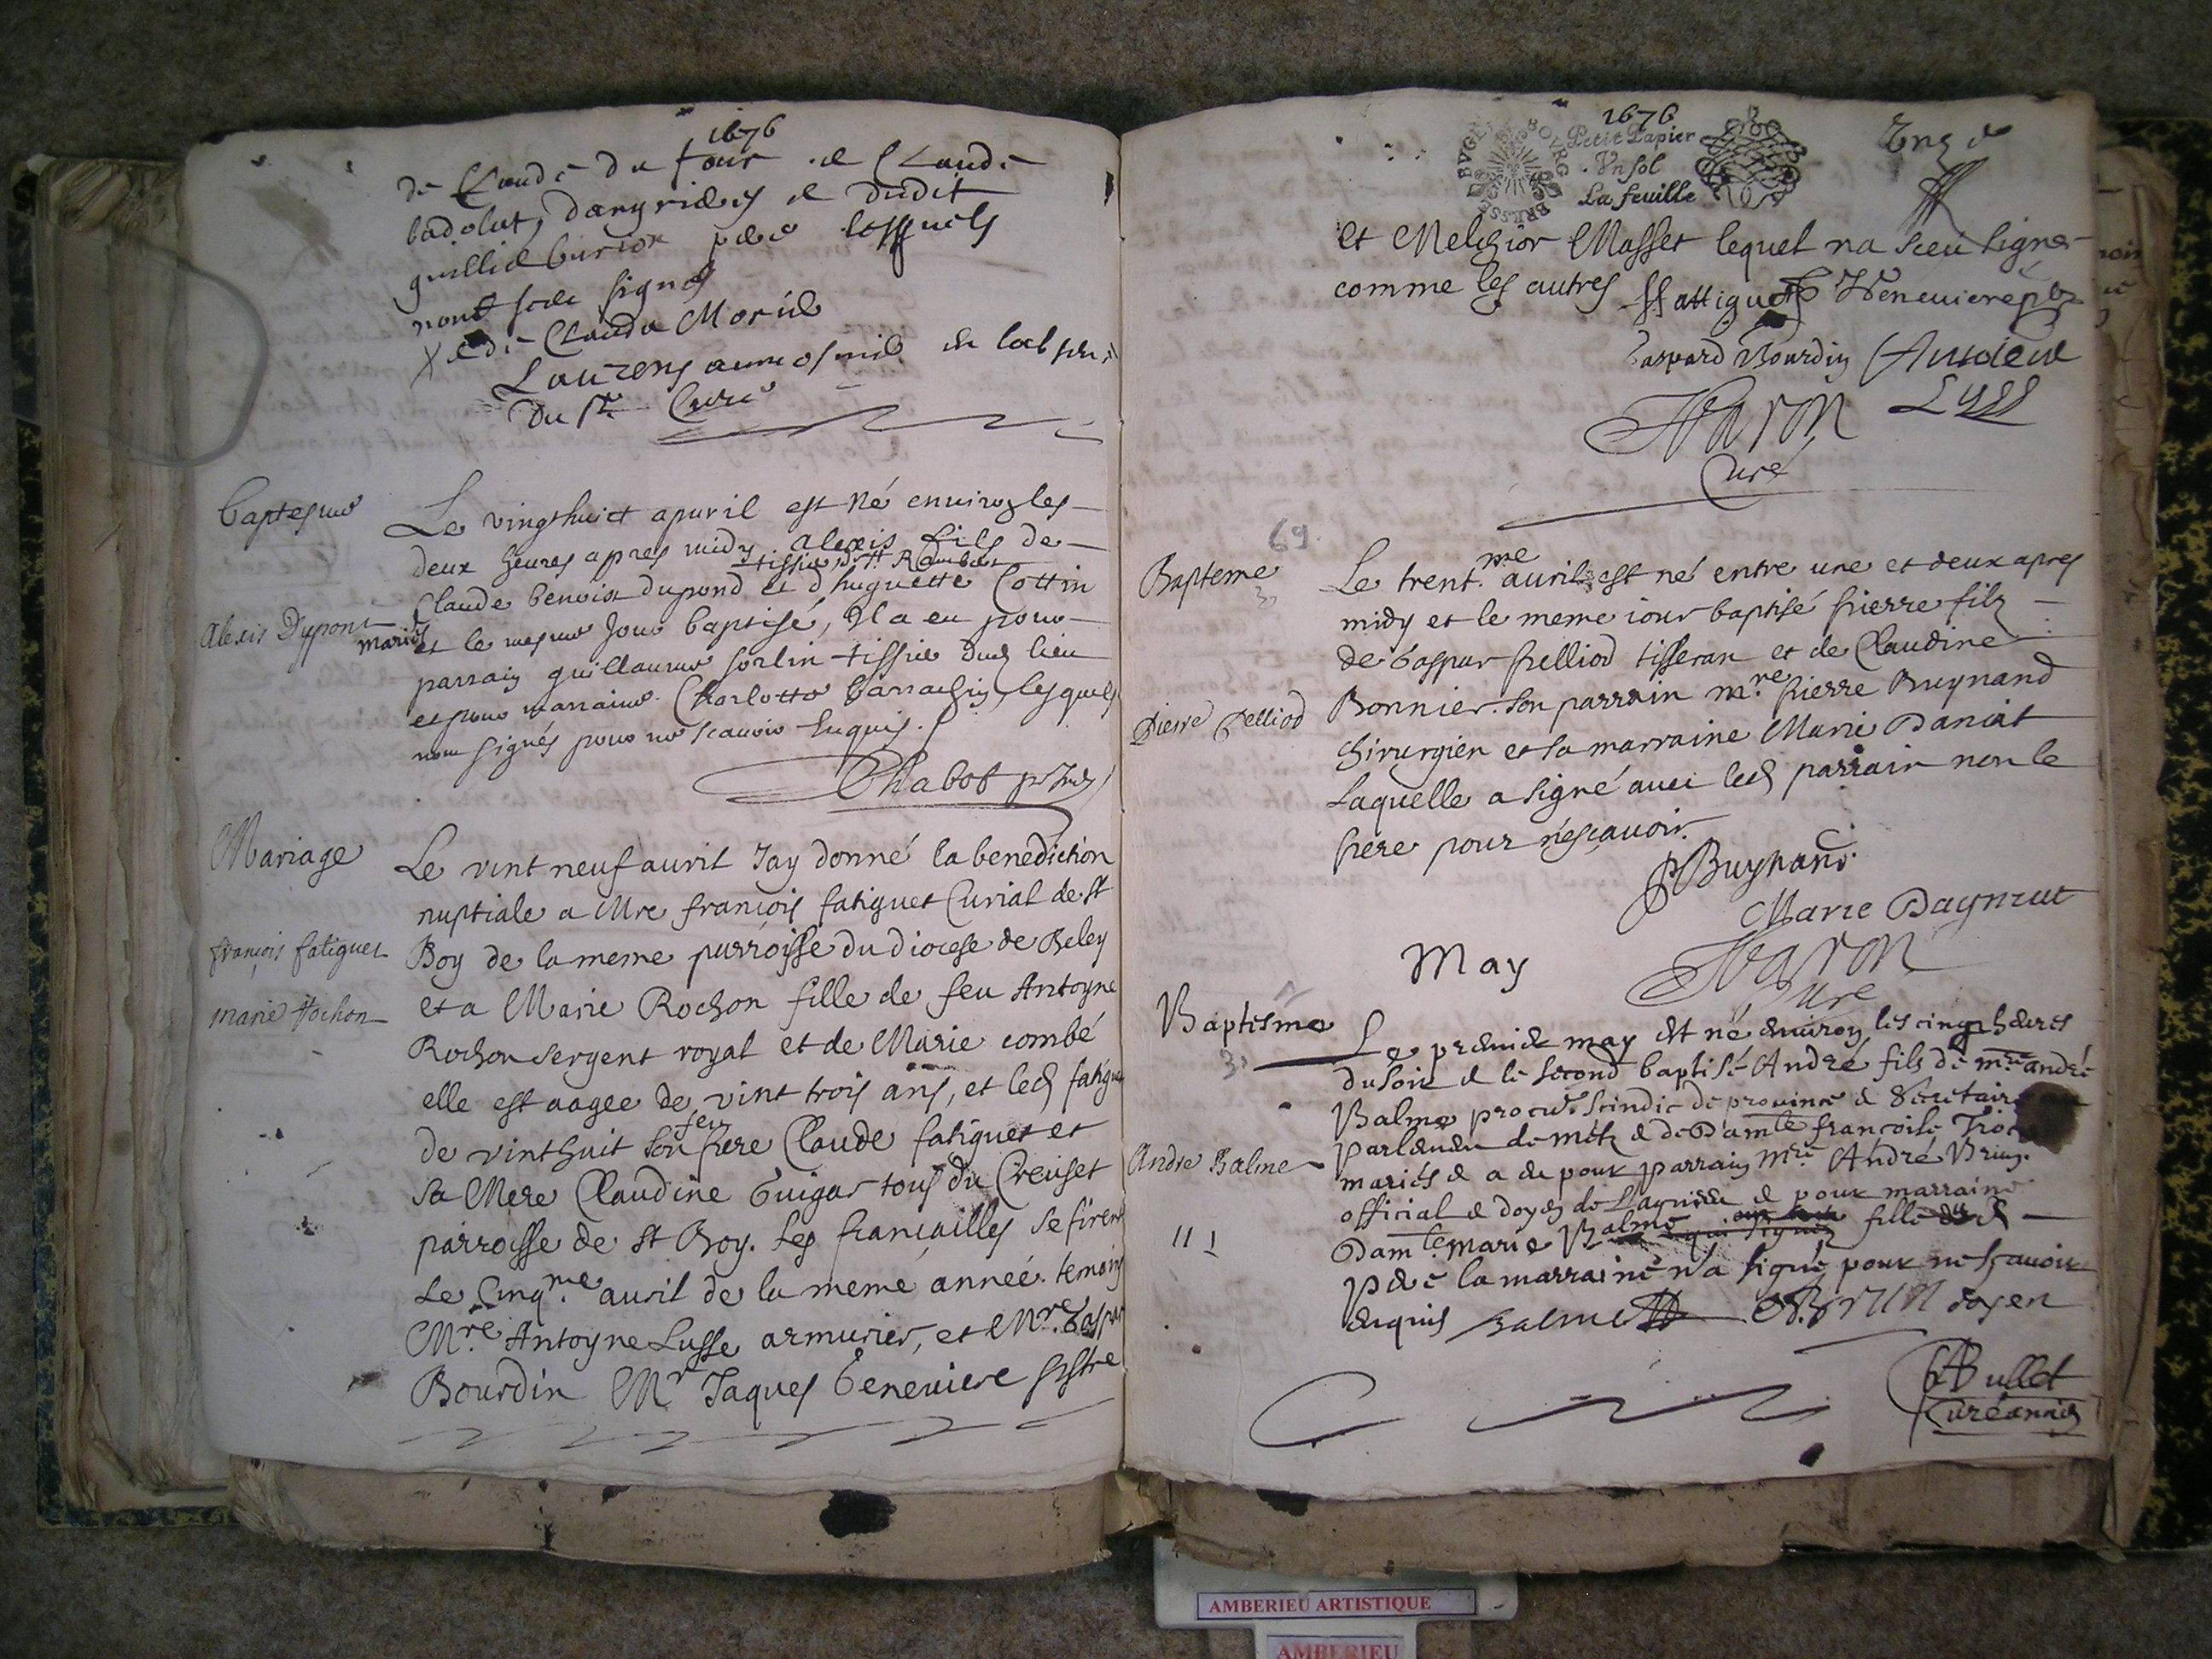 1676
de Claude du four et Claude
dudit
lesquels
nont sceu signer
et de Claude Morel
Laurens aumosnier en labsence
du Sr Curé
baptesme
Le vingthuict apvril est né environ les
deux heures apres midy alexis fils de
tissier dSt Rambert
Claude benoist dupond et d'huguette Cottin
Alexis Dupont
mariés
et le mesme jour baptisé, Il a eu pour
parrain guillaume sorlin tissier dud lieu
et pour marraine Charlotte barrachin lesquels
nont signés pour ne scavoir Enquis.
Chabot
Mariage
Le vint neuf avril Jay donné la benediction
nuptiale a Mre françois fatiguet Curial de st
françois fatiguet
Boy de la meme parroisse du diocese de Beley
marie Rochon
et a Marie Rochon fille de feu Antoyne
Rochon sergent royal et de Marie combé
elle est aagee de vint trois ans, et led fatigue
feu
de vinthuit son pere Claude fatiguet et
sa Mere Claudine Guigar tous du Creuset
parroisse de st Boy. les françailles se firent
Le Cinq.me avril de la meme année. temoins
Mre Antoyne Lusse armurier, et Mre Gaspar
Bourdin Mr Jaques Geneviere
1676
BVGEY BOVRG BRESSE
Petit Papier
Vn sol
La feuille
et Melchior Masset lequel na sceu signer
comme les autres ffattiguet Geneviere pbr
Gaspard Bourdin Antoine
Lusse
Varon
Curé
69.
Bapteme
3.
Le trent.me avril est né entre une et deux apres
midy et le meme iour baptisé pierre filz
de Gaspar pelliod tisseran et de Claudine
Pierre Pelliod
Bonnier. son parrain mre pierre Buynand
chirurgien et sa marraine Marie Daniat
laquelle a signé avec led parrain non le
pere pour ne sçavoir.
P Buynand
Marie
Varon
Curé
May
Baptesme
3.
Le premier may est né environ les cinq heures
du soir et le second baptisé André fils de mre andré
Balme procur. scindic de province et Secretaire
Parlement de metz et de Damle françoise
Andre Balme
mariés et a eu pour parrain Mre André Brun
official et doyen de et pour marraine
11 1
Damle marie Balme qui signés fille dud
pere la marraine n'a signé pour ne sçavoir
enquis Balme Brun doyen
Bullet
Curé
AMBERIEU ARTISTIQUE
AMBERIEU